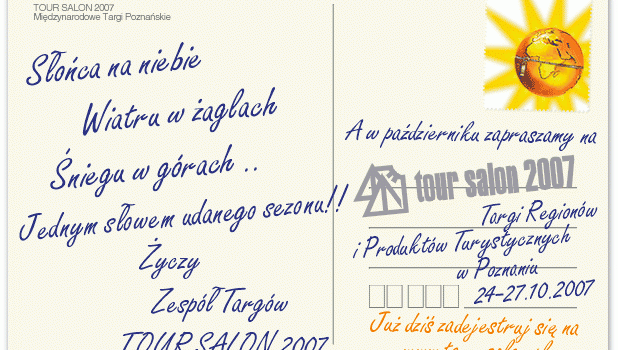 TOUR SALON 2007
Międzynarodowe Targi Poznańskie
Słońca na niebie
Wiatru w żaglach
Śniegu w górach ..
Jednym słowem udanego sezonu!!
Życzy
Zespół Targów
TOUR SALON 2007
A w październiku zapraszamy na
tour salon 2007
Targi Regionów
i Produktów Turystycznych
w Poznaniu
24-27.10.2007
Już dziś zadejestruj się na